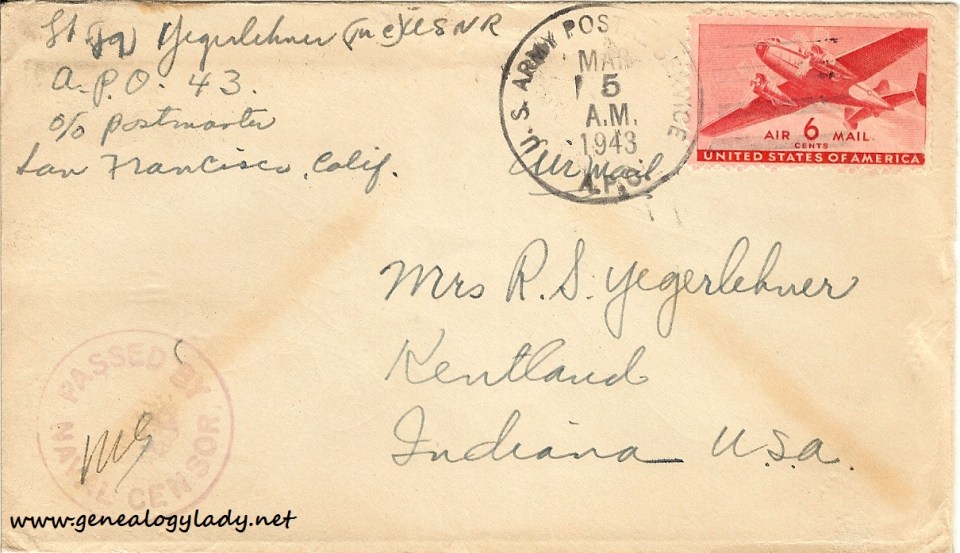 Lt (jg) Yegerlehner (MC) USNR
A.P.O. 43.
c/o Postmaster
San Francisco, Calif.
U.S. ARMY POSTAL SERVICE
MAR
5
A.M.
1943
A.P.O.
Air Mail
AIR 6 MAIL
CENTS
UNITED STATES OF AMERICA
Mrs R. S. Yegerlehner
Kentland
Indiana U.S.A.
PASSED BY
NAVAL CENSOR.
www.genealogylady.net